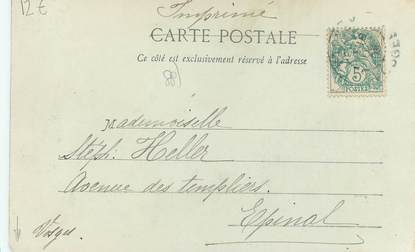 12 €
Imprimé
CARTE POSTALE
Ce côté est exclusivement réservé à l'adresse
5c
POSTES
Mademoiselle
Stéph. Heller
Avenue des templiers.
Epinal
Vosges.